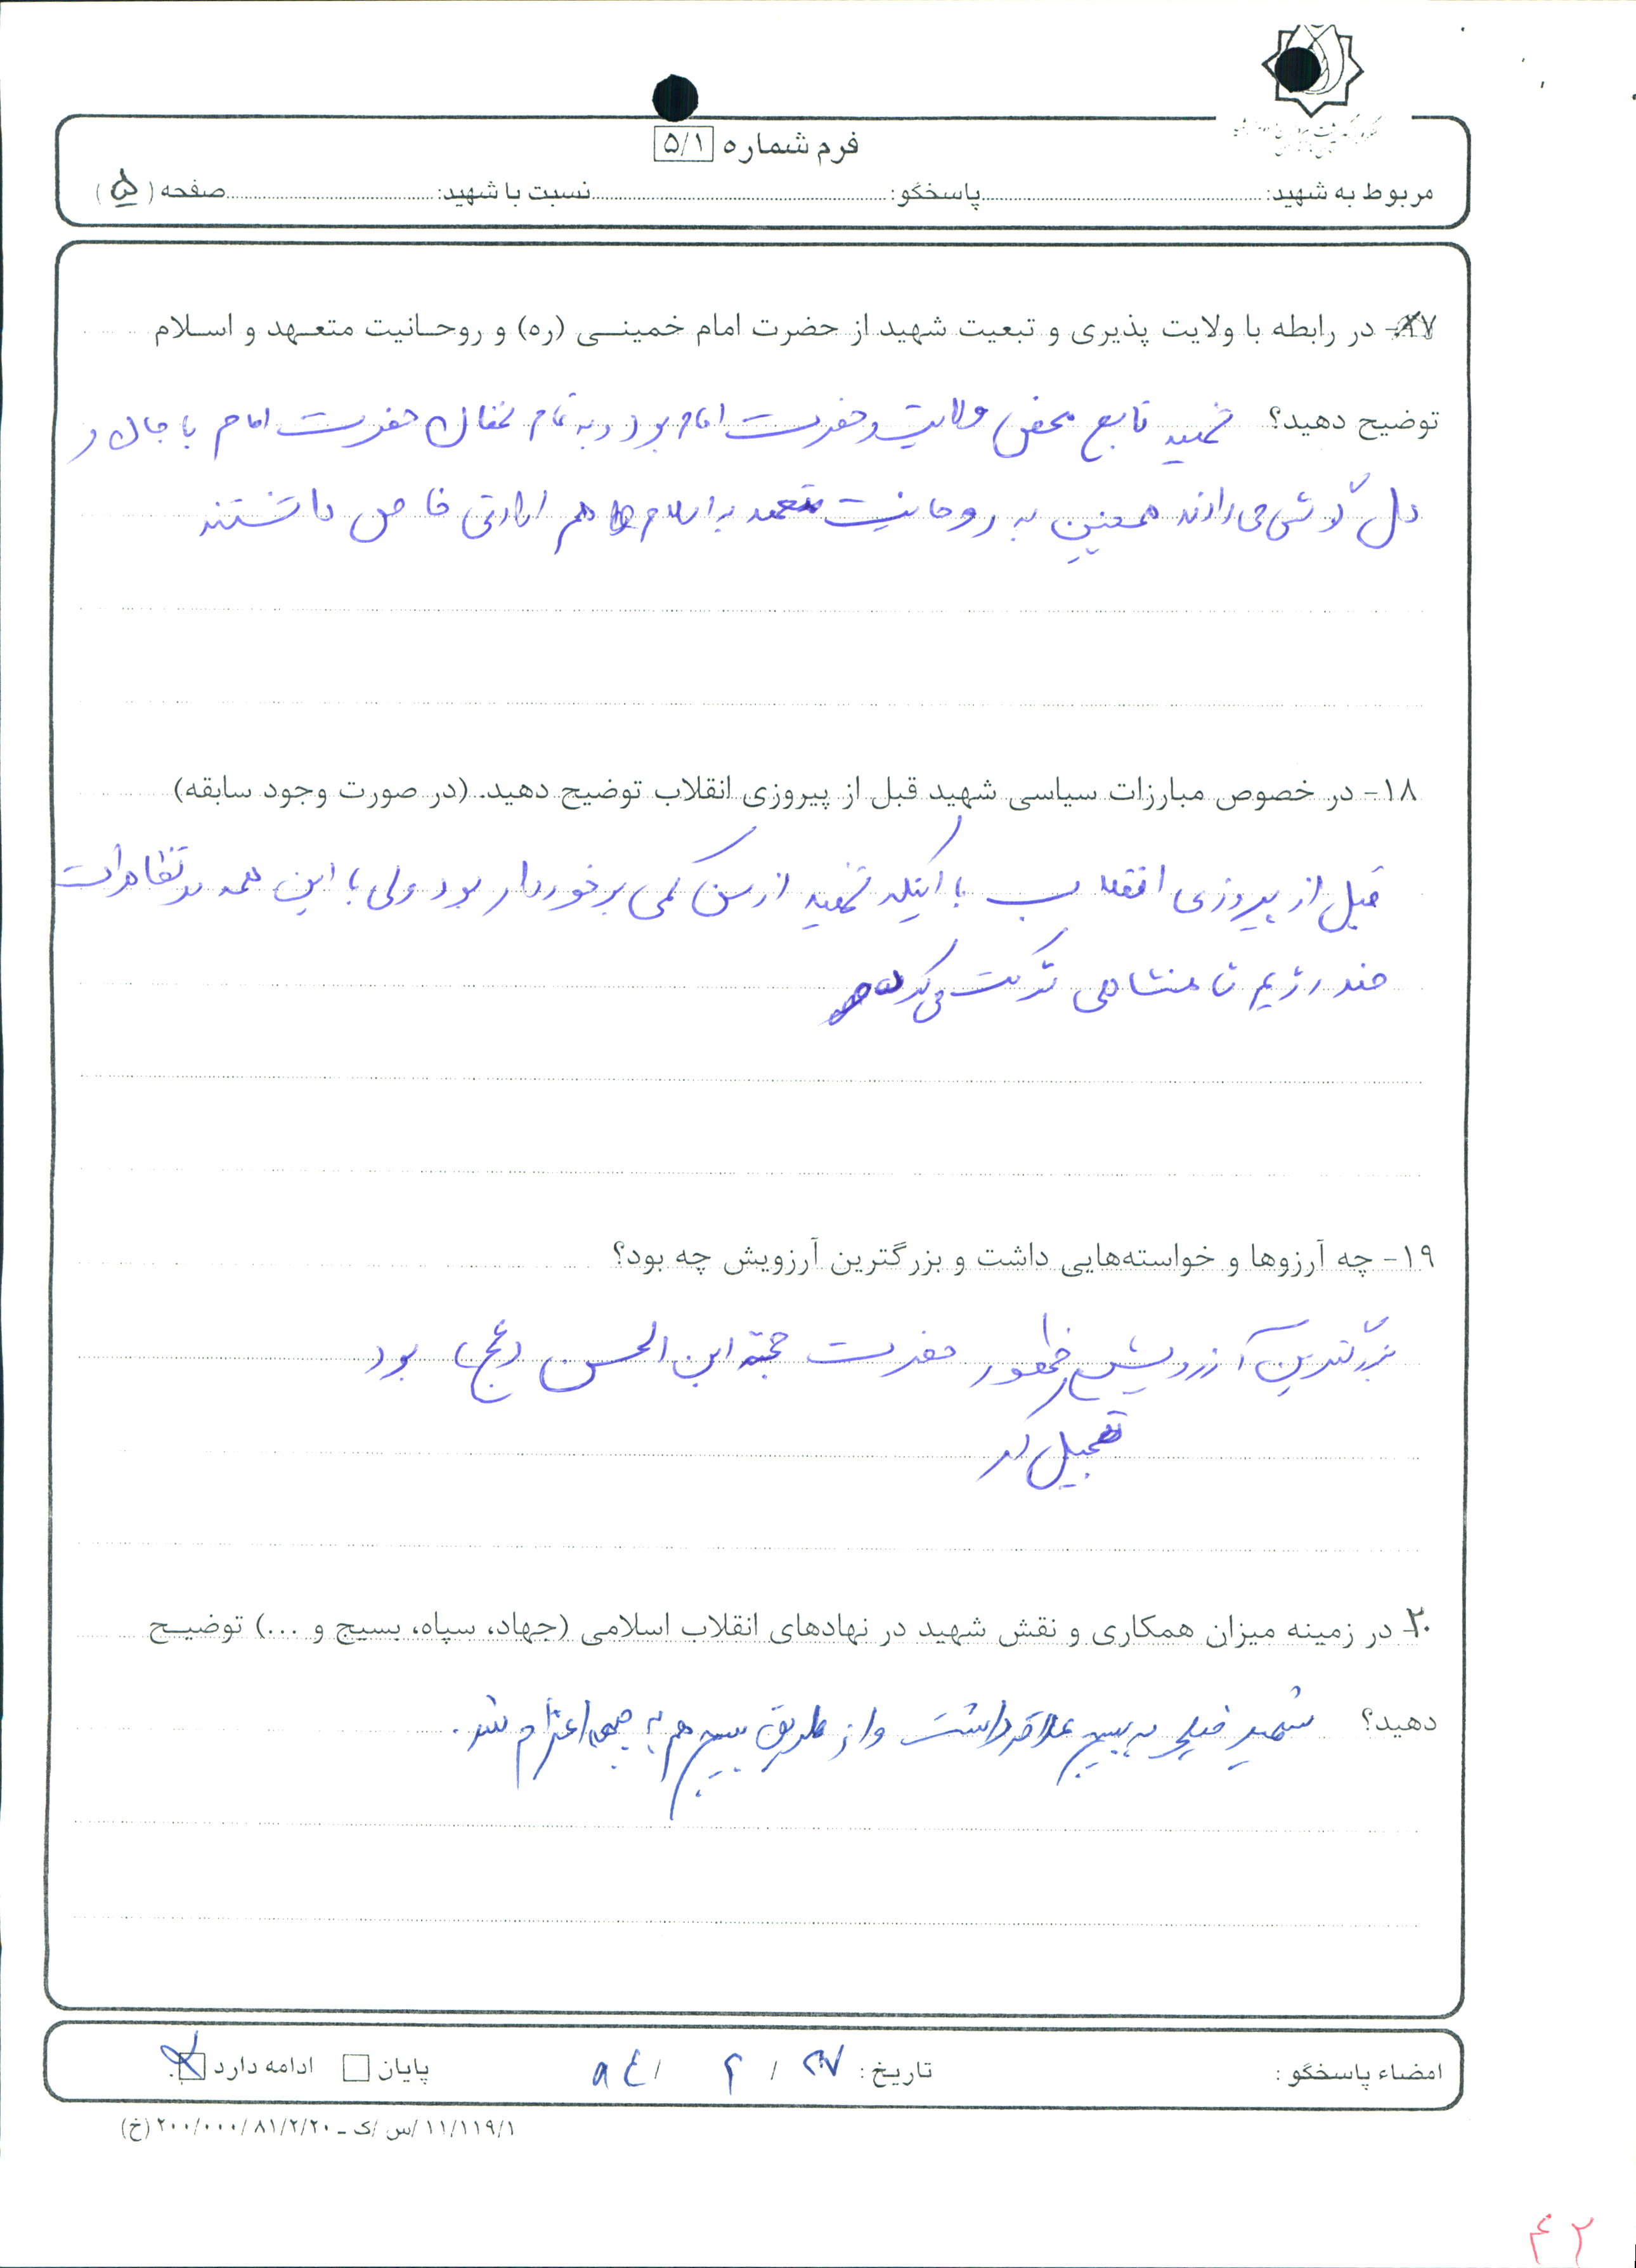 فرم شماره ۵/۱
مربوط به شهید: پاسخگو: نسبت با شهید: صفحه (۵)
۱۷- در رابطه با ولایت پذیری و تبعیت شهید از حضرت امام خمینی (ره) و روحانیت متعهد و اسلام
توضیح دهید؟ شهید تابع محض ولایت و حضرت امام بود و به تمام سخنان حضرت امام با جان و
دل گوش می دادند همچنین به روحانیت متعهد به اسلام هم ارادتی خاص داشتند
۱۸- در خصوص مبارزات سیاسی شهید قبل از پیروزی انقلاب توضیح دهید. (در صورت وجود سابقه)
قبل از پیروزی انقلاب با اینکه شهید از سن کمی برخوردار بود ولی با این همه در تظاهرات
ضد رژیم شاهنشاهی شرکت می کرد
۱۹- چه آرزوها و خواسته‌هایی داشت و بزرگترین آرزویش چه بود؟
بزرگترین آرزویش ظهور حضرت حجة ابن الحسن (عج) بود
تعجیل در
۲۰- در زمینه میزان همکاری و نقش شهید در نهادهای انقلاب اسلامی (جهاد، سپاه، بسیج و ...) توضیح
دهید؟ شهید خیلی به بسیج علاقه داشت و از طریق بسیج هم به جبهه اعزام شد.
امضاء پاسخگو: تاریخ: ۲۷ / ۲ / ۸۴ پایان ادامه دارد
۱۱/۱۱۹/۱ /س /ک - ۸۱/۲/۲۰ /۲۰۰/۰۰۰ (خ)
۴۲